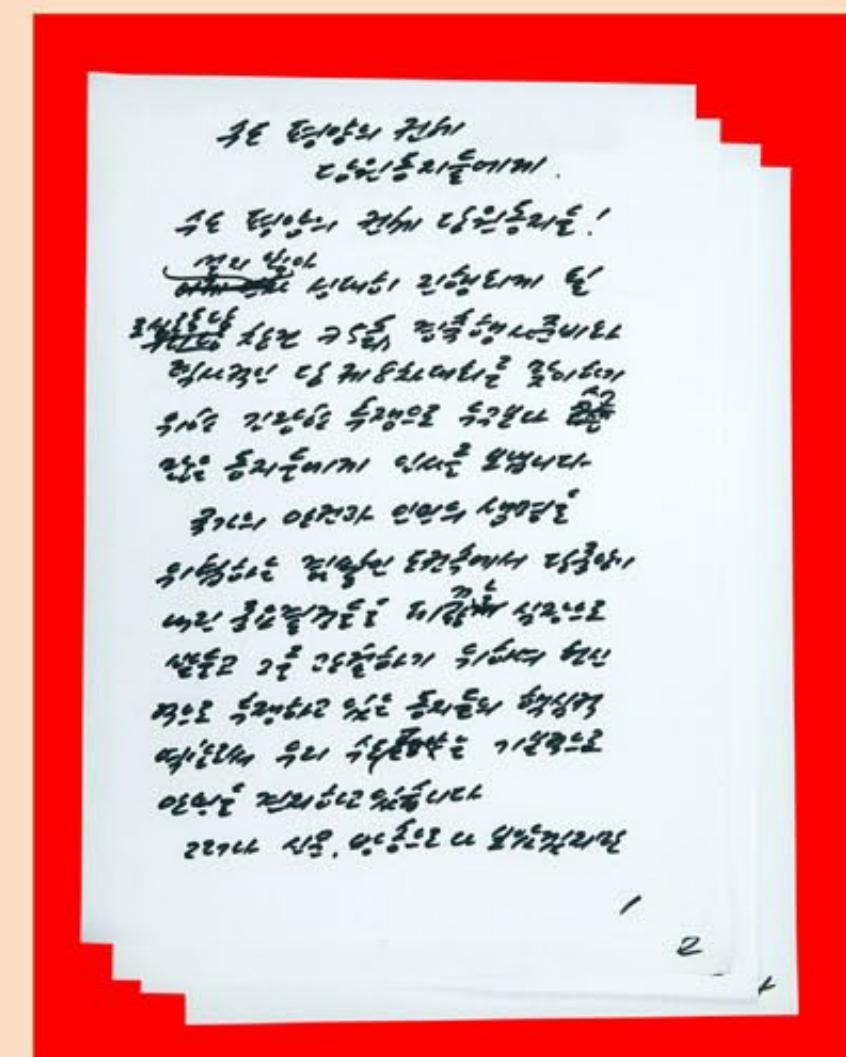 수도 평양의 전체
당원동지들에게.
수도 평양의 전체 당원동지들!
성대히 진행되게 될
조선로동당 창건 75돐 경축행사준비와
력사적인 당 제8차대회를 맞이하기
위한 긴장한 투쟁으로 누구보다 수고
많은 동지들에게 인사를 보냅니다.
국가의 안전과 인민의 생명을
위협하는 겹쌓인 도전속에서 당중앙이
내린 중요결정들을 피끓는 심장으로
받들고 그를 관철하기 위하여 헌신
적으로 투쟁하고 있는 동지들의 핵심적
우리 수도 는 기본적으로
안정을 견지하고 있습니다
그러나 신문, 방송으로나 보았겠지만
1
2